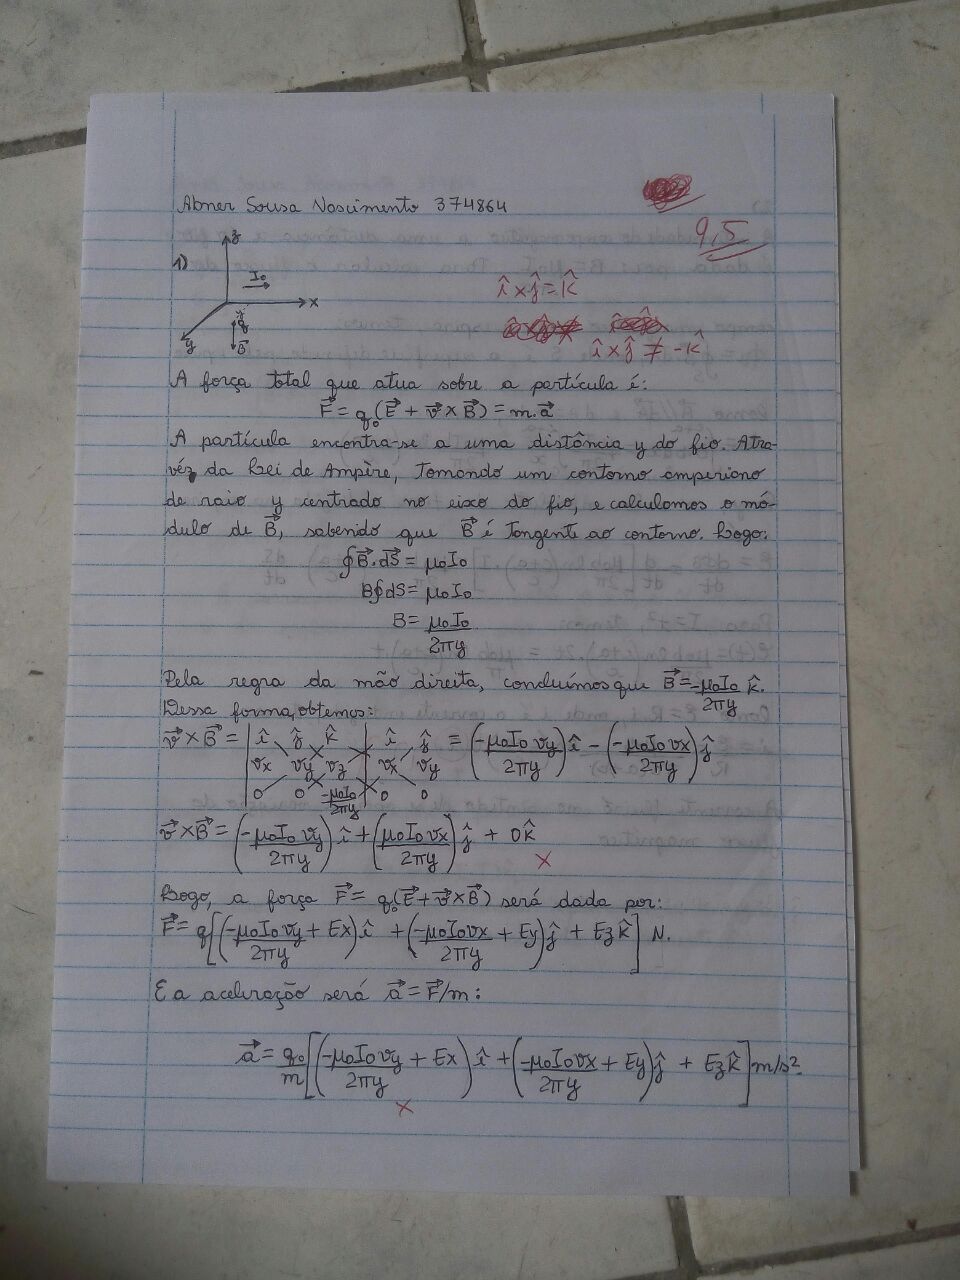 Abner Sousa Nascimento 374864
9,5
1)
z
I₀
x
y
q
B⃗
î x ĵ = k̂
î x ĵ ≠ -k̂
A força total que atua sobre a partícula é:
F⃗ = q₀(E⃗ + v⃗ x B⃗) = m.a⃗
A partícula encontra-se a uma distância y do fio. Atra-
véz da Lei de Ampère, tomando um contorno amperiano
de raio y centrado no eixo do fio, e calculamos o mó-
dulo de B⃗, sabendo que B⃗ é tangente ao contorno. Logo:
∮B⃗.dS⃗ = μ₀I₀
B∮dS = μ₀I₀
B = μ₀I₀/2πy
Pela regra da mão direita, concluímos que B⃗ = -μ₀I₀/2πy k̂.
Dessa forma, obtemos:
v⃗ x B⃗ = | î ĵ k̂ | î ĵ = (-μ₀I₀vy/2πy)î - (-μ₀I₀vx/2πy)ĵ
vx vy vz | vx vy
0 0 -μ₀I₀/2πy | 0 0
v⃗ x B⃗ = (-μ₀I₀vy/2πy)î + (μ₀I₀vx/2πy)ĵ + 0k̂
Logo, a força F⃗ = q₀(E⃗ + v⃗ x B⃗) será dada por:
F⃗ = q[(-μ₀I₀vy/2πy + Ex)î + (-μ₀I₀vx/2πy + Ey)ĵ + Ezk̂] N.
E a aceleração será a⃗ = F⃗/m:
a⃗ = q₀/m[(-μ₀I₀vy/2πy + Ex)î + (-μ₀I₀vx/2πy + Ey)ĵ + Ezk̂] m/s²